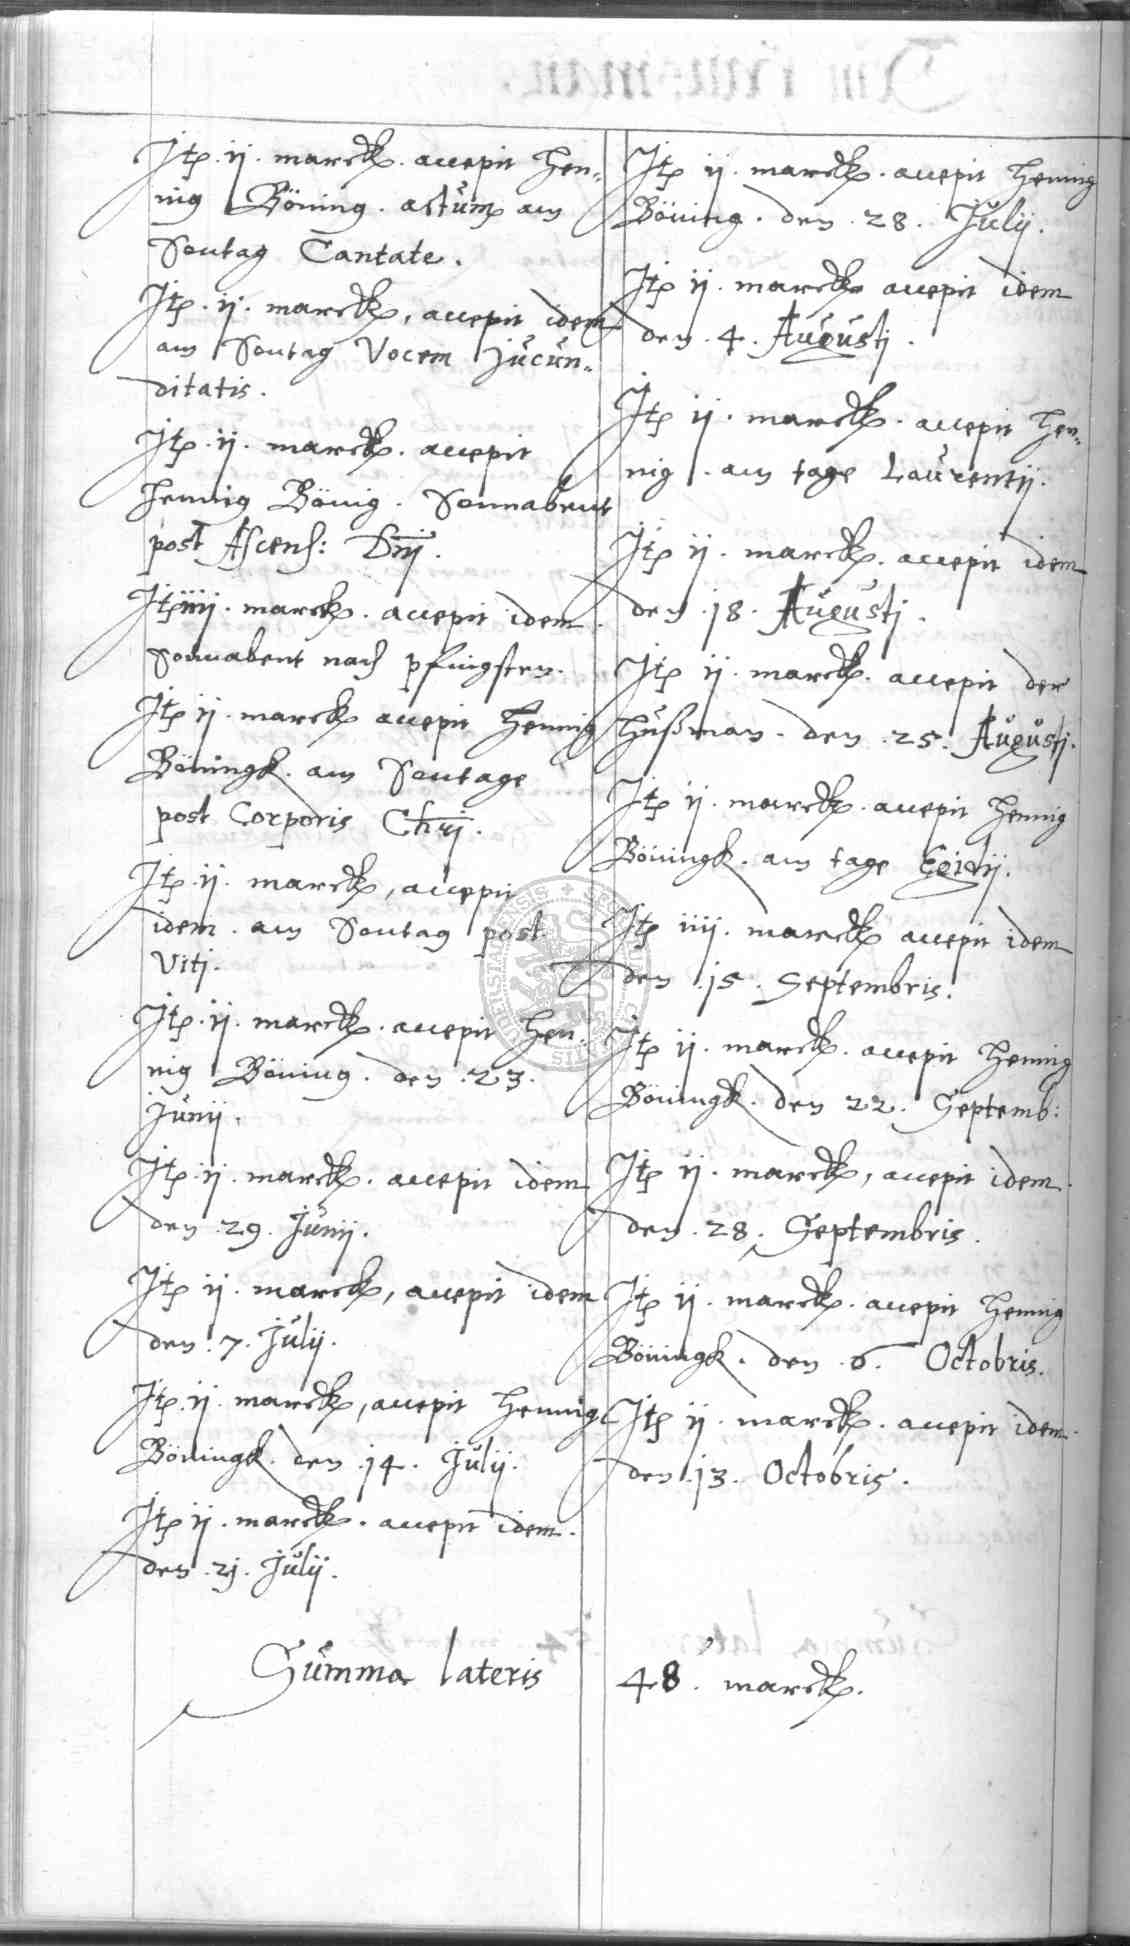 Jtp. ij. marck. accepit Hen„
nig Böning. actum am
Sontag Cantate.
Jtp. ij. marck, accepit idem
am Sontag Vocem Jucun„
ditatis.
Jtp. ij. marck. accepit
Hennig Bönig. Sonnabent
post Ascens: Dnj.
Jtp iiij. marck. accepit idem.
Sonnabent nach pfingsten.
Jtp ij. marck accepit Hennig
Böningk. am Sontage
post Corporis Chrj.
Jtp. ij. marck, accepit
idem. am Sontag post
Vitj.
Jtp. ij. marck. accepit Hen„
nig Böning. den .23.
Junij.
Jtp. ij. marck. accepit idem
den .29. Junij.
Jtp ij. marck, accepit idem
den .7. Julij.
Jtp. ij. marck, accepit Hennig
Böningk. den .14. Julij.
Jtp ij. marck. accepit idem.
den .21. Julij.
Jtp ij. marck. accepit Hennig
Böning. den .28. Julij.
Jtp ij. marck accepit idem
den .4. Augustj.
Jtp ij. marck. accepit Hen„
nig. am tage Laurentij.
Jtp ij. marck. accepit idem
den .18. Augustj.
Jtp ij. marck. accepit der
Hußman. den .25. Augustj.
Jtp ij. marck. accepit Hennig
Böningk. am tage Egidij.
Jtp iiij. marck accepit idem
den .15. Septembris.
Jtp ij. marck. accepit Hennig
Böningk. den 22. Septemb:
Jtp ij. marck, accepit idem.
den .28. Septembris.
Jtp ij. marck. accepit Hennig
Böningk. den .6. Octobris.
Jtp ij. marck. accepit idem.
den .13. Octobris.
Summa lateris 48. marck.